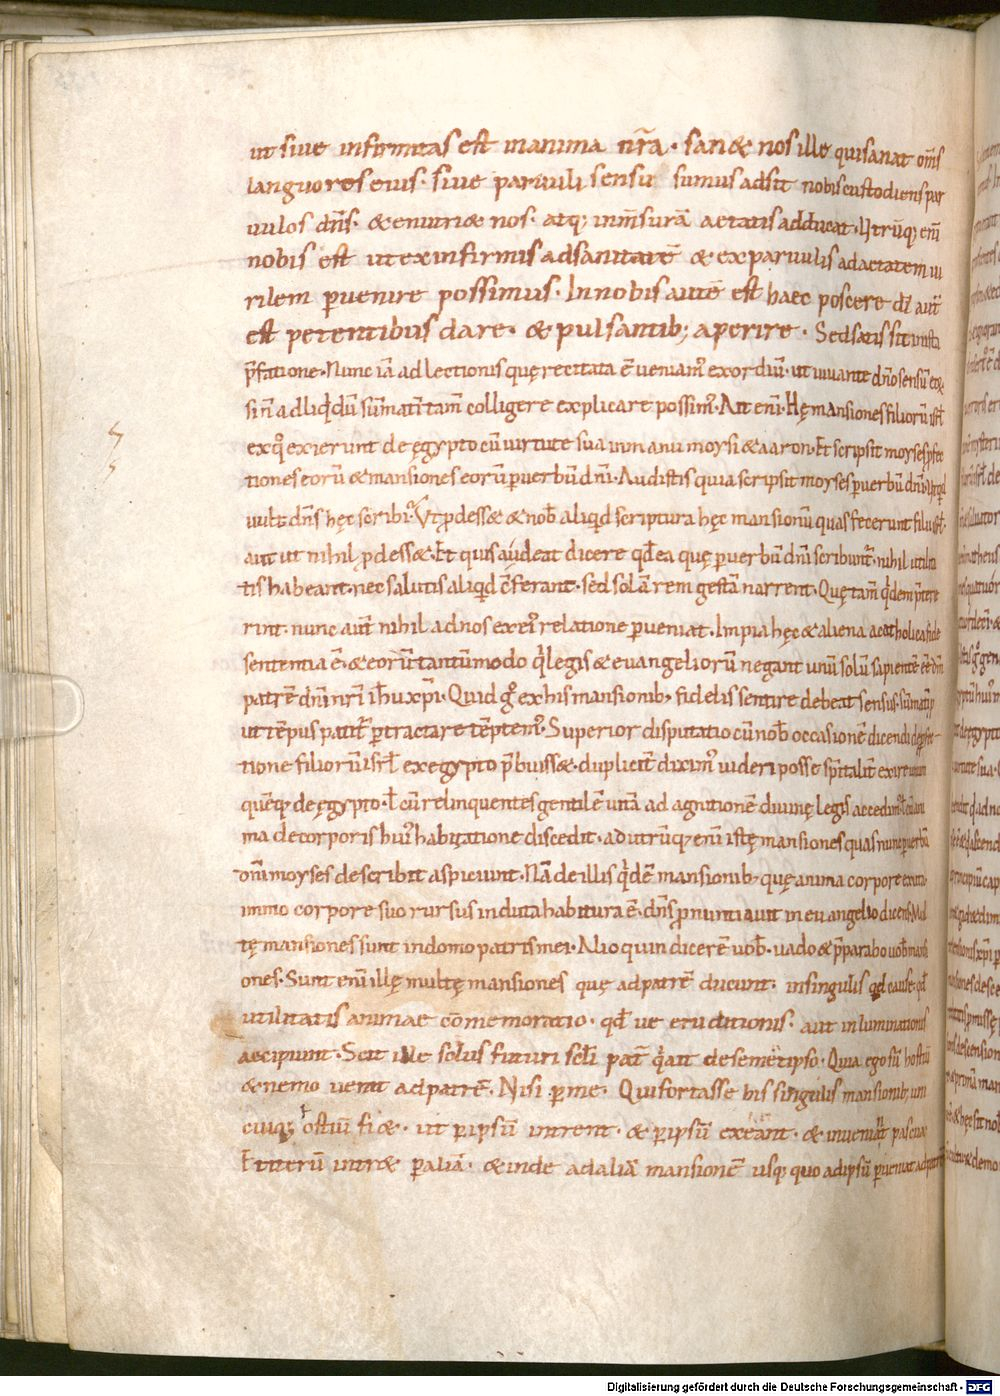 ut siue infirmitas est in anima nr̄a · san& nos ille qui sanat om̄s
languores eius · siue paruuli sensu sumus adsit nobis custodiens par
uulos dn̄s · & enutri& nos · atq; in m̄surā aetatis adducat · Utrūq; eni̅
nobis est ut ex infirmis ad sanitatē & ex paruulis ad aetatem ui
rilem ꝑuenire possimus · In nobis autē est haec poscere dī aut̄
est petentibus dare · & pulsantib; aperire · Sed satis sit in ista
p̄fatione · Nunc iā ad lectionis quę recitata ē ueniam᾿ exordiū · ut iuuante dn̄o sensū ei᾿
si n̄ ad liqdū sūmatī tam̄ colligere explicare possim᾿ · Ait eni̅ · Hę mansiones filiorū isrl̄
ex q᾿ exierunt de ęgypto cū uirtute sua in manu moysi & aaron · Et scripsit moyses ꝓfec
tiones eorū & mansiones eorū ꝑ uerbū dn̄i · Audistis quia scripsit moyses ꝑ uerbū dn̄i ·
uult dn̄s hęc scribi · Ut ꝓdess& & nob̄ aliqid scriptura hęc mansionū quas fecerunt filii isrl̄ ·
aut ut nihil ꝓdess& · Et quis audeat dicere qd̄ ea quę ꝑ uerbū dn̄i scribunt̄ · nihil utilita
tis habeant · nec salutis aliqid c̄ferant · sed solā rem gestā narrent · Quę tam̄ qdem p̄terie
rint · nunc aut̄ nihil ad nos ex ei᾿ relatione ꝑueniat · Impia hęc & aliena a catholica fide
sententia ē · & eorū tantūmodo q̇ legis & euangeliorū negant unū solū sapientē eē dm̄
patrē dn̄i nr̄i ih̄u xp̄i · Quid g᾿ ex his mansionib; fidelis sentire debeat sensus · sūmatī
ut tēpus patit̄ ꝑtractare tēptem᾿ · Superior disputatio cū nob̄ occasionē dicendi de ꝓfec
tione filiorū isrl̄ ex egypto p̄buiss& · duplicit̄ dixim᾿ uideri posse sp̄italit̄ exire
quēq; de ęgypto · ł cū relinquentes gentilē uitā ad agnitionē diuinę legis accedim᾿ · ł cū ani
ma de corporis hui᾿ habitatione discedit · ad utrūq; eni̅ istę mansiones quas nunc ꝑ uerbū
dn̄i moyses describit aspiciunt · Nā de illis qdē mansionib; quę anima corpore exuta
immo corpore suo rursus induta habitura ē · dn̄s ꝓnuntiauit in euangelio dicens · Mul
tę mansiones sunt in domo patris mei · Alioquin dicerē uob̄ · uado & p̄parabo uob̄ mansi
ones · Sunt eni̅ illę multę mansiones quę ad patrē ducunt · in singulis qd cause · qd
utilitatis animae cōmemoratio · qd ue eruditionis · aut inluminationis
aecipiunt · Scit ille solus futuri scl̄i pat̄ q̇ ait de semetipso · Quia ego sū hostiū
& nemo uenit ad patrē · Nisi ꝑ me · Qui fortasse bis singulis mansionib; uni
cuiq; ostiū fi& · ut ꝑ ipsū intrent · & ꝑ ipsū exeant · & inueniat pascua
Et iterū intr& ꝑ aliā · & inde ad aliā mansionē usq; quo ad ipsū ꝑueniat ad patrē
Digitalisierung gefördert durch die Deutsche Forschungsgemeinschaft - DFG